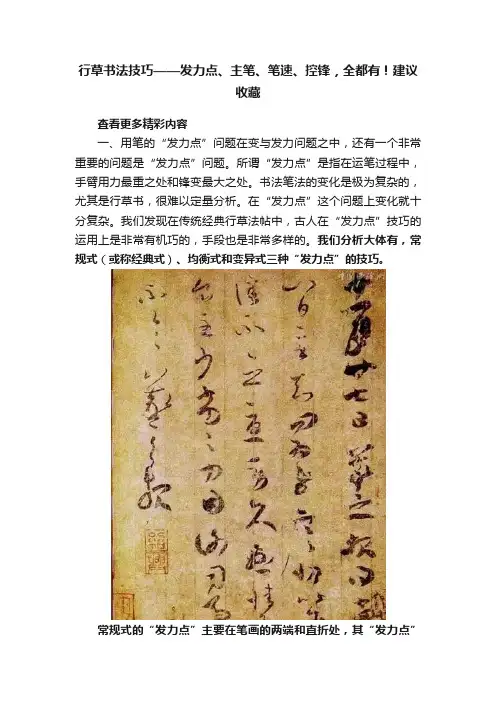 行草书法技巧——发力点、主笔、笔速、控锋，全都有！建议
收藏
查看更多精彩内容
一、用笔的“发力点”问题在变与发力问题之中，还有一个非常
重要的问题是“发力点”问题。所谓“发力点”是指在运笔过程中，
手臂用力最重之处和锋变最大之处。书法笔法的变化是极为复杂的，
尤其是行草书，很难以定量分析。在“发力点”这个问题上变化就十
分复杂。我们发现在传统经典行草法帖中，古人在“发力点”技巧的
运用上是非常有机巧的，手段也是非常多样的。我们分析大体有，常
规式（或称经典式）、均衡式和变异式三种“发力点”的技巧。
廿七日羲之報得
八日二書知問為慰寒切比各
不念憂勞久懸情
食至少劣劣力因謝司馬書
不一一羲之報
常规式的“发力点”主要在笔画的两端和直折处，其“发力点”